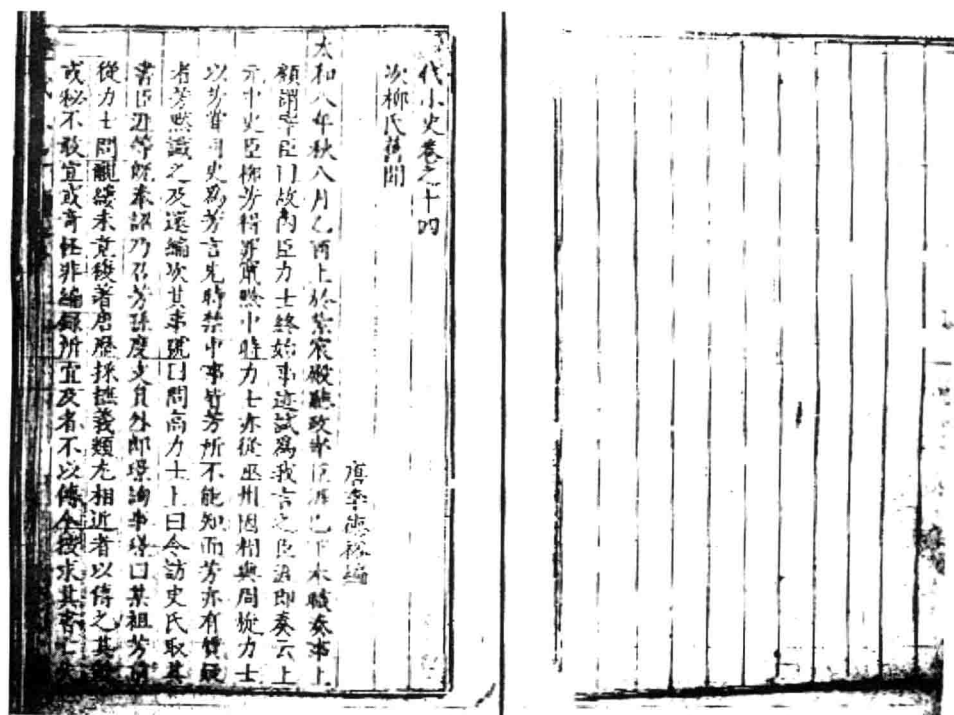 代小史卷之十四
次柳氏舊聞
唐李德裕編
太和八年秋八月乙酉上於紫宸殿聽政宰臣涯已下奉職奏事上
顧謂宰臣曰故內臣力士終始事迹試爲我言之臣涯即奏云上
元中史臣柳芳得罪竄黔中時力士亦從巫州因相與周旋力士
以芳嘗司史爲芳言先時禁中事皆芳所不能知而芳亦有質疑
者芳黙識之及還編次其事號曰問高力士上曰令訪史氏取其
書臣涯等既奉詔乃召芳孫度支員外郎璟詢事璟曰某祖芳前
從力士問覼縷未竟後著唐歷採摭義類尤相近者以傳之其餘
或秘不敢宣或奇怪非編錄所宜及者不以傳今按求其書亡失